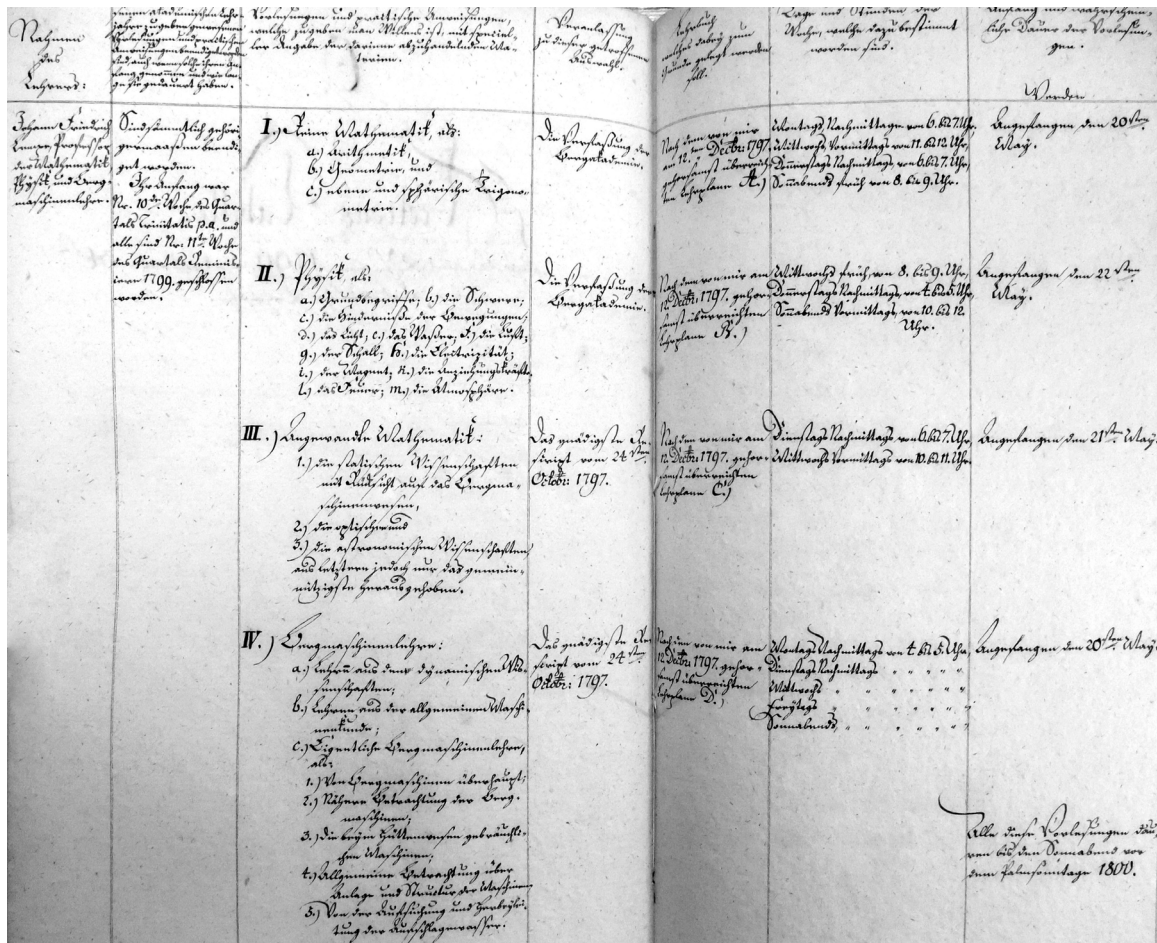 Nahmen
des
Lehrers:
seinen akademischen Lehr-
jahren zugebenversprochenen
Vorlesungen und praktischen
Anweisungen beendigt worden
sind, auch wenn solche ihren An-
fang genommen und wie lan-
ge sie gedauert haben.
Vorlesungen und practische Anweisungen,
welche zu geben man Willens ist, mit speciel-
ler Angabe der darinne abzuhandelnden Ma-
terien.
Veranlassung
zu dieser getroffenen
Auswahl.
Lehrbuch
welches dabey zum
Grunde gelegt werden
soll.
Tage und Stunden der
Woche, welche dazu bestimmt
worden sind.
Anfang und wahrschein-
liche Dauer der Vorlesun-
gen.
Werden
Johann Friedrich
Lempe, Professor
der Mathematik
Physik, und Berg-
maschinenlehre.
Sind sämmtlich gehöri-
germaaßen beendi-
get worden.
Ihr Anfang war
Nr. 10te Woche des Quar-
tals Trinitatis p.a. und
alle sind Nr: 11te Woche
des Quartals Reminis-
cere 1799. geschlossen
worden.
I.) Reine Mathematik, als:
a.) Arithmetik,
b.) Geometrie, und
c.) ebene und sphärische Trigono-
metrie.
Die Verfaßung der
Bergakademie.
Nach dem von mir
am 12. Decbr: 1797.
gehorsamst überreich
ten Lehrplane A.)
Montags Nachmittage von 6. bis 7. Uhr,
Mittwochs Vormittags von 11. bis 12. Uhr,
Donnerstags Nachmittags, von 6. bis 7. Uhr,
Sonnabends früh von 8. bis 9. Uhr.
Angefangen, den 20sten
May.
II.) Physik, als:
a.) Grundbegriffe; b.) die Schwere;
c.) die Hinderniße der Bewegungen;
d.) das Licht; e.) das Waßer; f.) die Luft;
g.) der Schall; h.) die Electrizität;
i.) der Magnet; k.) die Anziehungskräfte
l.) das Feuer; m.) die Atmosphäre.
Die Verfaßung der
Bergakademie.
Nach dem von mir am
12 Decbr: 1797. gehor-
samst überreichten
Lehrplane B.)
Mittwochs früh, von 8. bis 9. Uhr,
Donnerstags Nachmittags, von 4. bis 5. Uhr,
Sonnabends Vormittags, von 10. bis 12.
Uhr.
Angefangen den 22sten
May.
III.) Angewandte Mathematik:
1.) die statischen Wissenschaften
mit Rücksicht auf das Bergma-
schinenwesen,
2.) die optischen und
3.) die astronomischen Wissenschaften
aus letztern jedoch nur das gemein-
nützigste herausgehoben.
Das gnädigste Re-
script vom 24sten
Octobr: 1797.
Nach dem von mir am
12 Decbr: 1797. gehor-
samst überreichten
Lehrplane C.)
Dienstags Nachmittags von 6. bis 7. Uhr,
Mittwochs Vormittags von 10. bis 11. Uhr.
Angefangen den 21sten May.
IV.) Bergmaschinenlehre:
a.) Lehren aus den dynamischen Wis-
senschaften;
b.) Lehren aus der allgemeinen Maschi-
nenkunde;
c.) Eigentliche Bergmaschinenlehre,
als:
1.) Von Bergmaschinen überhaupt;
2.) Nähere Betrachtung der Berg-
maschinen;
3.) Die beym Hüttenwesen gebräuchli-
chen Maschinen;
4.) Allgemeine Betrachtung über
Anlage und Structur der Maschinen
5.) Von der Aufsuchung und Herbeylei-
tung der Aufschlagewasser.
Das gnädigste Re-
script vom 24sten
Octobr: 1797.
Nach dem von mir am
12 Decbr: 1797. gehor-
samst überreichten
Lehrplane D.)
Montags Nachmittags von 4 bis 5. Uhr,
Dienstags Nachmittags " " " " "
Mittwochs " " " " " "
Freytags " " " " " "
Sonnabends, " " " " " "
Angefangen den 20sten May.
Alle diese Vorlesungen dau-
ren bis den Sonnabend vor
dem Palmsonntage 1800.